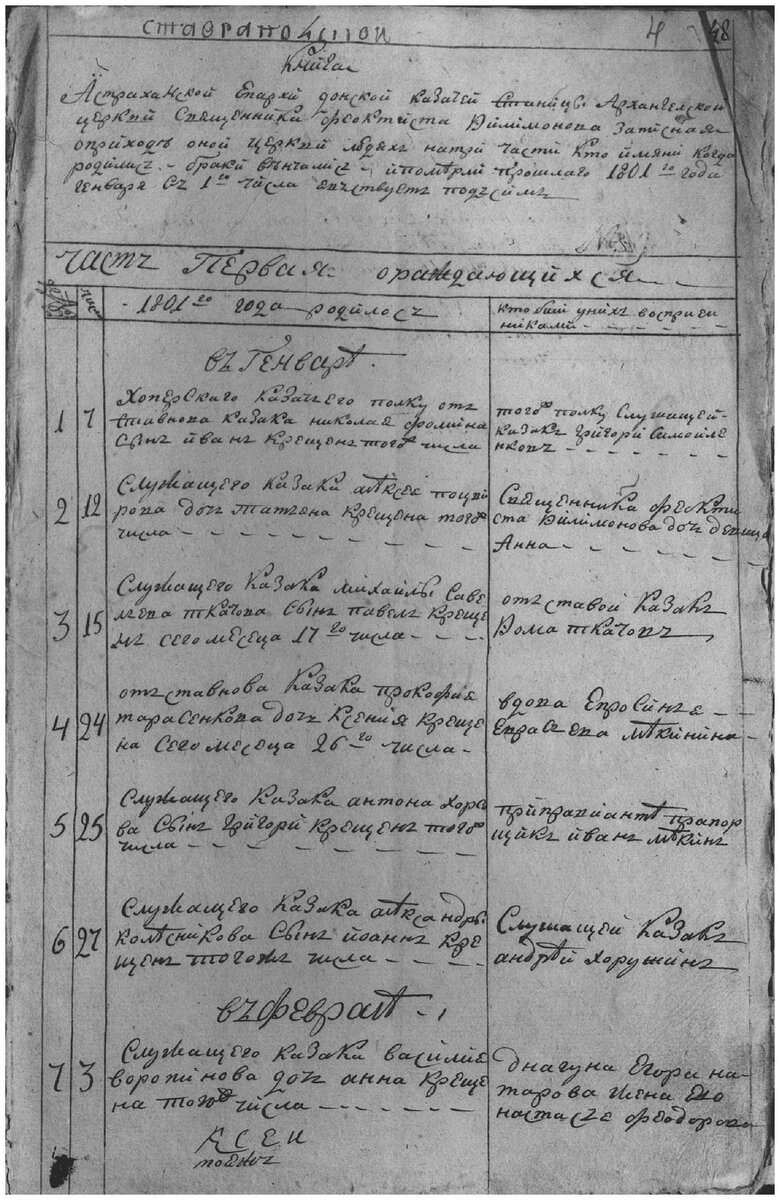 ставрапольской 4 48
Книга
Астраханской Епархи донской казачей Станицы Архангелской
церкви Священника феоктиста Филимонова записная
оприходе оной церкви людях натри части кто имяни когда
родилис – браки венчались – ипомерли прошлаго 1801го года
генваря съ 1го числа явствует подъ сим
часть Первая ораждающихся
1801го года родилось
ктобыли унихъ восприем
никами
въ Генваре
1 7 Хоперскаго казачьего полку отъ
ставнова казака николая фролина
сынъ йванъ крещенъ тогожъ числа
тогожъ полку служащей
казакъ григори самойле
нковъ
2 12 Служащего казака алѣксея
рова доч татьена крещена тогожъ
числа
Священника феокти
ста Филимонова доч девица
Анна
3 15 Служащего казака михайлы саве
льева ткачова сынъ павелъ креще
нъ сего месеца 17го числа
отъ ставой казакъ
Фома ткачовъ
4 24 отъ ставнова казака прокофия
тарасенкова доч ксения креще
на сего месеца 26го числа
вдова Епросинья
5 25 Служащего казака антона
ва сынъ григори крещенъ тогожъ
числа
прапор
щикъ йванъ
6 27 Служащего казака алѣксандры
колѣсникова сынъ йоаннъ кре
щенъ тогожъ числа
Служащей казакъ
андрѣй хорушинъ
въ феврале
7 3 Служащего казака василие
воропинова доч анна креще
на тогожъ числа
драгуна Егора на
тарова жена ево
настасья феодорова